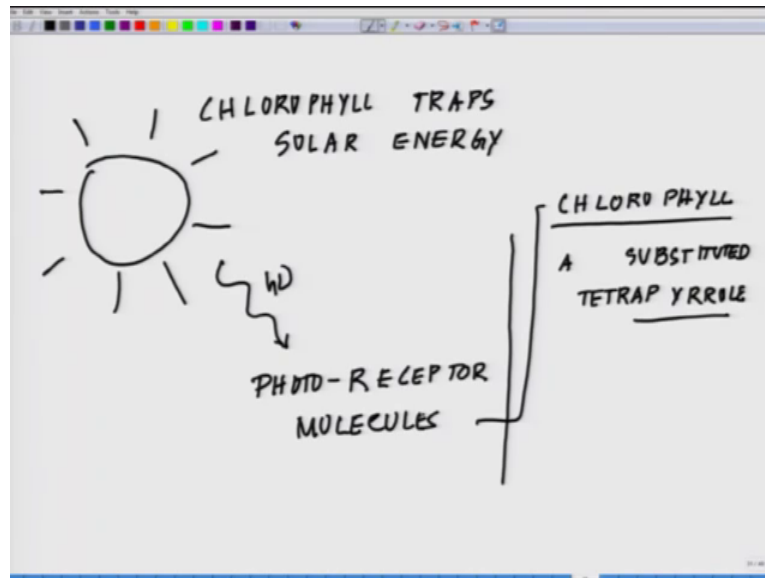 CHLOROPHYLL TRAPS
SOLAR ENERGY
hν
PHOTO-RECEPTOR
MOLECULES
CHLOROPHYLL
A SUBSTITUTED
TETRAPYRROLE